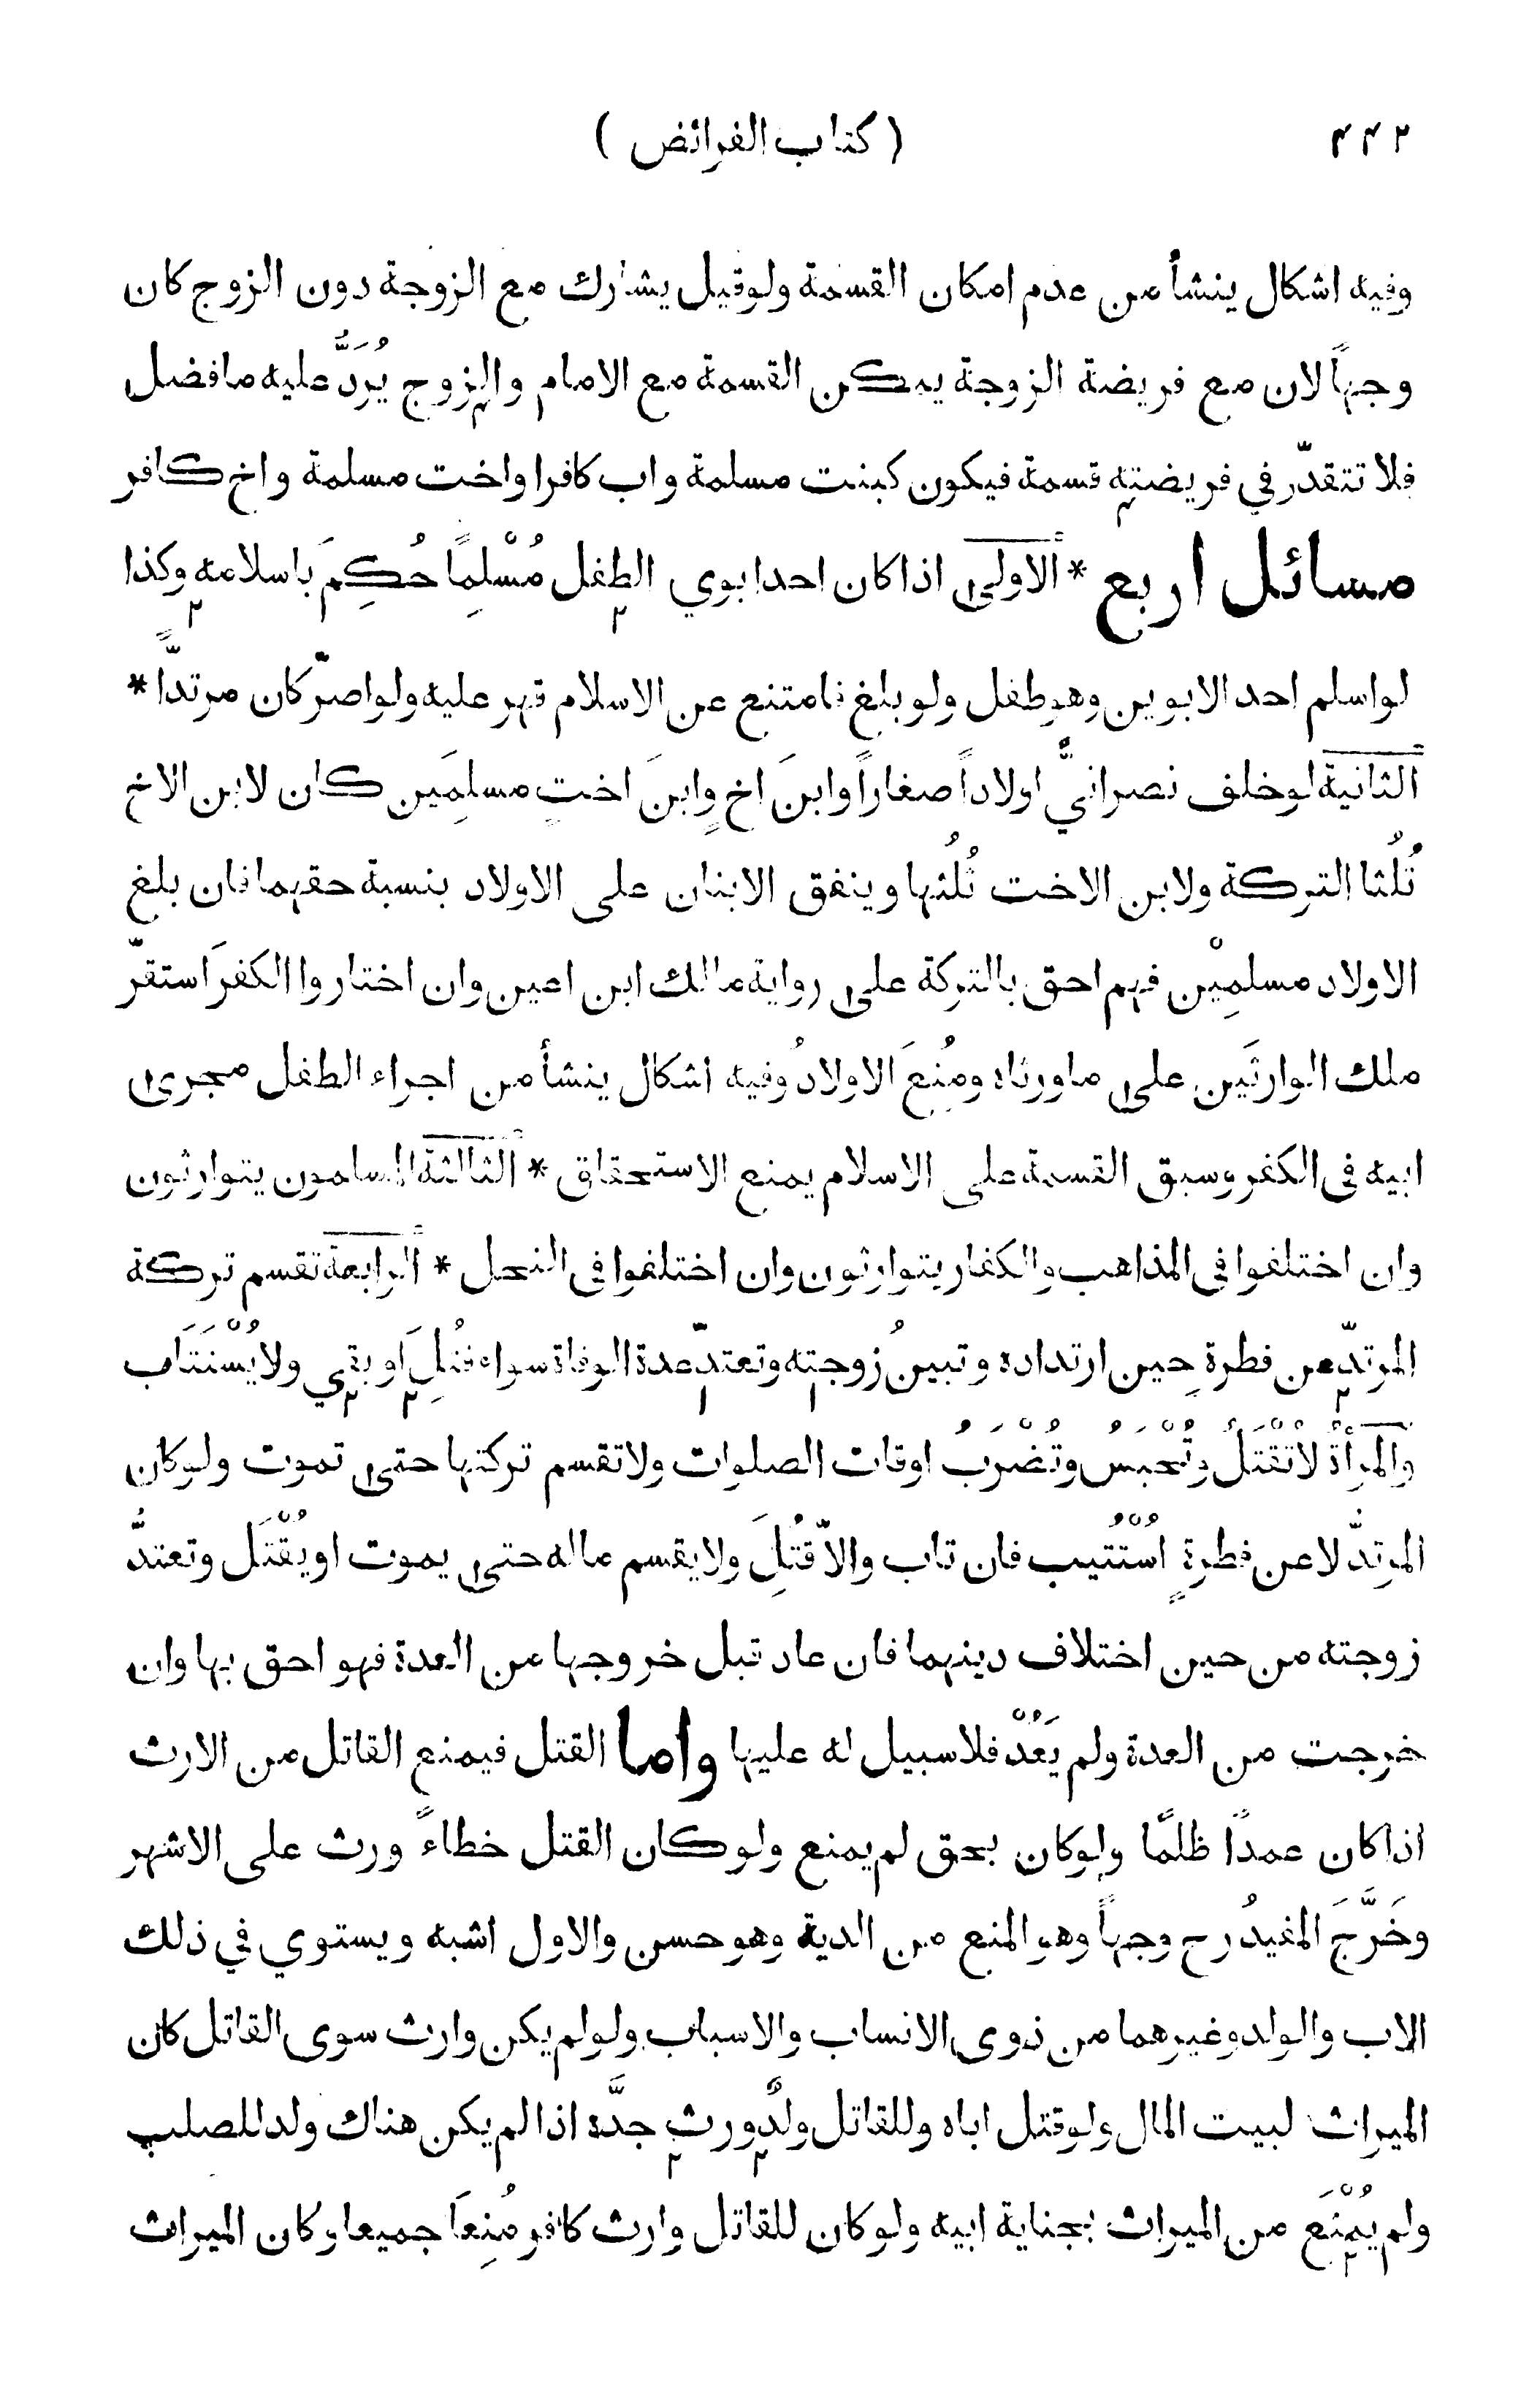 ٤٤٢
( كتاب الفرائض )
وفيه اشكال ينشأ من عدم امكان القسمة ولوقيل يشارك مع الزوجة دون الزوج كان
وجهاً لان مع فريضة الزوجة يمكن القسمة مع الامام والزوج يُرَدُّ عليه مافضل
فلا تتقدّر في فريضته قسمة فيكون كبنت مسلمة واب كافرا واخت مسلمة واخ كافر
مسائل اربع * الاولى اذا كان احد ابوي الطفل مُسْلِمًا حُكِمَ باسلامه وكذا
لواسلم احد الابوين وهو طفل ولو بلغ فامتنع عن الاسلام قهر عليه ولواصرّ كان مرتدًّا *
الثانية لوخلف نصرانيٌّ اولاداً صغاراً وابنَ اخٍ وابنَ اختٍ مسلمَين كان لابن الاخ
ثُلُثا التركة ولابن الاخت ثُلُثها وينفق الابنان على الاولاد بنسبة حقهما فان بلغ
الاولاد مسلمِيْن فهم احق بالتركة على رواية مالك ابن اعين وان اختاروا الكفرَ استقرّ
ملك الوارثَين على ماورثاه ومُنِعَ الاولادُ وفيه اشكال ينشأ من اجراء الطفل مجرى
ابيه فى الكفر وسبق القسمة على الاسلام يمنع الاستحقاق * الثالثة المسلمون يتوارثون
وان اختلفوا في المذاهب والكفار يتوارثون وان اختلفوا في النحل * الرابعة تقسم تركة
المرتدّ عن فطرة حين ارتداده وتبينُ زوجته وتعتدّ عدة الوفاة سواء قُتِلَ او بقي ولا يُسْتَتَاب
والمرأةُ لا تُقْتَلُ وتُحْبَسُ وتُضْرَبُ اوقات الصلوات ولاتقسم تركتها حتى تموت ولوكان
المرتدُّ لا عن فطرةٍ اُسْتُتيب فان تاب والاّ قُتِلَ ولا يقسم ماله حتى يموت او يُقْتَل وتعتدُّ
زوجته من حين اختلاف دينهما فان عاد قبل خروجها من العدة فهو احق بها وان
خرجت من العدة ولم يَعُدْ فلا سبيل له عليها واما القتل فيمنع القاتل من الارث
اذا كان عمدًا ظلمًا ولوكان بحق لم يمنع ولو كان القتل خطاءً ورث على الاشهر
وخَرَّجَ المفيدُ رح وجهاً وهو المنع من الدية وهو حسن والاول اشبه ويستوي في ذلك
الاب والولد وغيرهما من ذوى الانساب والاسباب ولو لم يكن وارث سوى القاتل كان
الميراث لبيت المال ولوقتل اباه وللقاتل ولدٌ ورث جدَّه اذا لم يكن هناك ولد للصلب
ولم يُمْنَع من الميراث بجناية ابيه ولو كان للقاتل وارث كافر مُنِعَا جميعا وكان الميراث